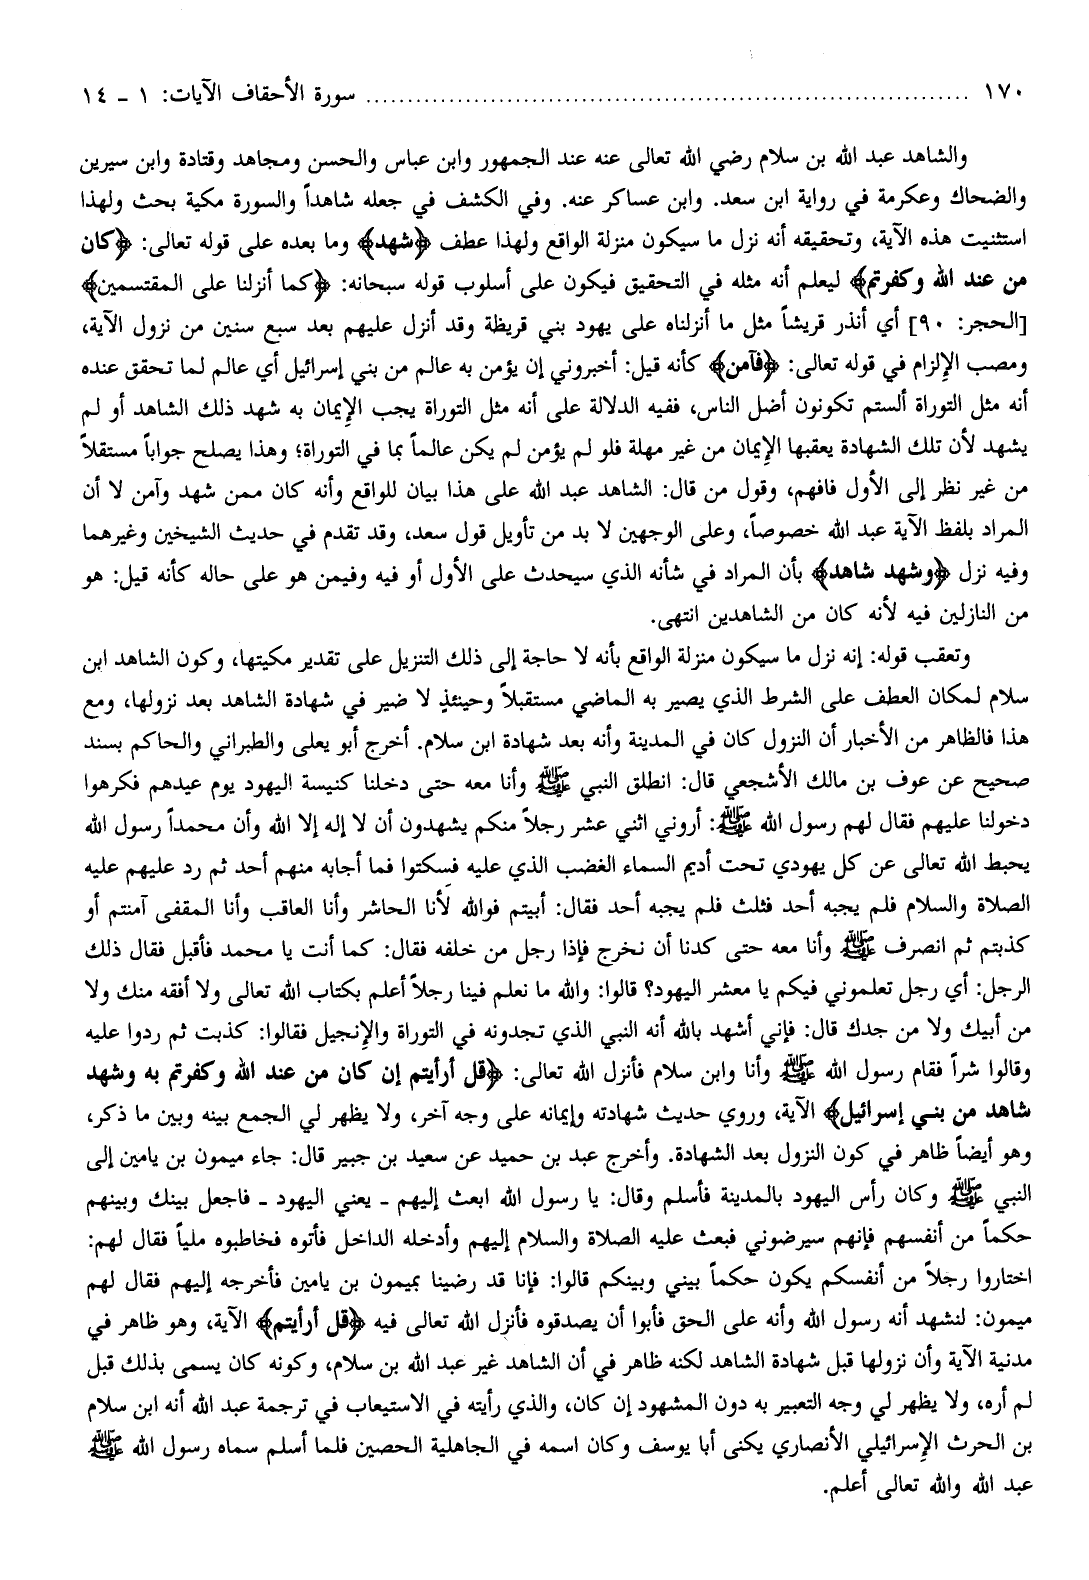 ١٧٠ ............................................................ سورة الأحقاف الآيات: ١ - ١٤
والشاهد عبد الله بن سلام رضي الله تعالى عنه عند الجمهور وابن عباس والحسن ومجاهد وقتادة وابن سيرين
والضحاك وعكرمة في رواية ابن سعد. وابن عساكر عنه. وفي الكشف في جعله شاهداً والسورة مكية بحث ولهذا
استثنيت هذه الآية، وتحقيقه أنه نزل ما سيكون منزلة الواقع ولهذا عطف ﴿شهد﴾ وما بعده على قوله تعالى: ﴿كان
من عند الله وكفرتم﴾ ليعلم أنه مثله في التحقيق فيكون على أسلوب قوله سبحانه: ﴿كما أنزلنا على المقتسمين﴾
[الحجر: ٩٠] أي أنذر قريشاً مثل ما أنزلناه على يهود بني قريظة وقد أنزل عليهم بعد سبع سنين من نزول الآية،
ومصب الإلزام في قوله تعالى: ﴿فآمن﴾ كأنه قيل: أخبروني إن يؤمن به عالم من بني إسرائيل أي عالم لما تحقق عنده
أنه مثل التوراة ألستم تكونون أضل الناس، ففيه الدلالة على أنه مثل التوراة يجب الإيمان به شهد ذلك الشاهد أو لم
يشهد لأن تلك الشهادة يعقبها الإيمان من غير مهلة فلو لم يؤمن لم يكن عالماً بما في التوراة؛ وهذا يصلح جواباً مستقلاً
من غير نظر إلى الأول فافهم، وقول من قال: الشاهد عبد الله على هذا بيان للواقع وأنه كان ممن شهد وآمن لا أن
المراد بلفظ الآية عبد الله خصوصاً، وعلى الوجهين لا بد من تأويل قول سعد، وقد تقدم في حديث الشيخين وغيرهما
وفيه نزل ﴿وشهد شاهد﴾ بأن المراد في شأنه الذي سيحدث على الأول أو فيه وفيمن هو على حاله كأنه قيل: هو
من النازلين فيه لأنه كان من الشاهدين انتهى.
وتعقب قوله: إنه نزل ما سيكون منزلة الواقع بأنه لا حاجة إلى ذلك التنزيل على تقدير مكيتها، وكون الشاهد ابن
سلام لمكان العطف على الشرط الذي يصير به الماضي مستقبلاً وحينئذٍ لا ضير في شهادة الشاهد بعد نزولها، ومع
هذا فالظاهر من الأخبار أن النزول كان في المدينة وأنه بعد شهادة ابن سلام. أخرج أبو يعلى والطبراني والحاكم بسند
صحيح عن عوف بن مالك الأشجعي قال: انطلق النبي ﷺ وأنا معه حتى دخلنا كنيسة اليهود يوم عيدهم فكرهوا
دخولنا عليهم فقال لهم رسول الله ﷺ: أروني اثني عشر رجلاً منكم يشهدون أن لا إله إلا الله وأن محمداً رسول الله
يحبط الله تعالى عن كل يهودي تحت أديم السماء الغضب الذي عليه فسكتوا فما أجابه منهم أحد ثم رد عليهم عليه
الصلاة والسلام فلم يجبه أحد فثلث فلم يجبه أحد فقال: أبيتم فوالله لأنا الحاشر وأنا العاقب وأنا المقفى آمنتم أو
كذبتم ثم انصرف ﷺ وأنا معه حتى كدنا أن نخرج فإذا رجل من خلفه فقال: كما أنت يا محمد فأقبل فقال ذلك
الرجل: أي رجل تعلموني فيكم يا معشر اليهود؟ قالوا: والله ما نعلم فينا رجلاً أعلم بكتاب الله تعالى ولا أفقه منك ولا
من أبيك ولا من جدك قال: فإني أشهد بالله أنه النبي الذي تجدونه في التوراة والإنجيل فقالوا: كذبت ثم ردوا عليه
وقالوا شراً فقام رسول الله ﷺ وأنا وابن سلام فأنزل الله تعالى: ﴿قل أرأيتم إن كان من عند الله وكفرتم به وشهد
شاهد من بني إسرائيل﴾ الآية، وروي حديث شهادته وإيمانه على وجه آخر، ولا يظهر لي الجمع بينه وبين ما ذكر،
وهو أيضاً ظاهر في كون النزول بعد الشهادة. وأخرج عبد بن حميد عن سعيد بن جبير قال: جاء ميمون بن يامين إلى
النبي ﷺ وكان رأس اليهود بالمدينة فأسلم وقال: يا رسول الله ابعث إليهم - يعني اليهود - فاجعل بينك وبينهم
حكماً من أنفسهم فإنهم سيرضوني فبعث عليه الصلاة والسلام إليهم وأدخله الداخل فأتوه فخاطبوه ملياً فقال لهم:
اختاروا رجلاً من أنفسكم يكون حكماً بيني وبينكم قالوا: فإنا قد رضينا بميمون بن يامين فأخرجه إليهم فقال لهم
ميمون: لنشهد أنه رسول الله وأنه على الحق فأبوا أن يصدقوه فأنزل الله تعالى فيه ﴿قل أرأيتم﴾ الآية، وهو ظاهر في
مدنية الآية وأن نزولها قبل شهادة الشاهد لكنه ظاهر في أن الشاهد غير عبد الله بن سلام، وكونه كان يسمى بذلك قبل
لم أره، ولا يظهر لي وجه التعبير به دون المشهود إن كان، والذي رأيته في الاستيعاب في ترجمة عبد الله أنه ابن سلام
بن الحرث الإسرائيلي الأنصاري يكنى أبا يوسف وكان اسمه في الجاهلية الحصين فلما أسلم سماه رسول الله ﷺ
عبد الله والله تعالى أعلم.